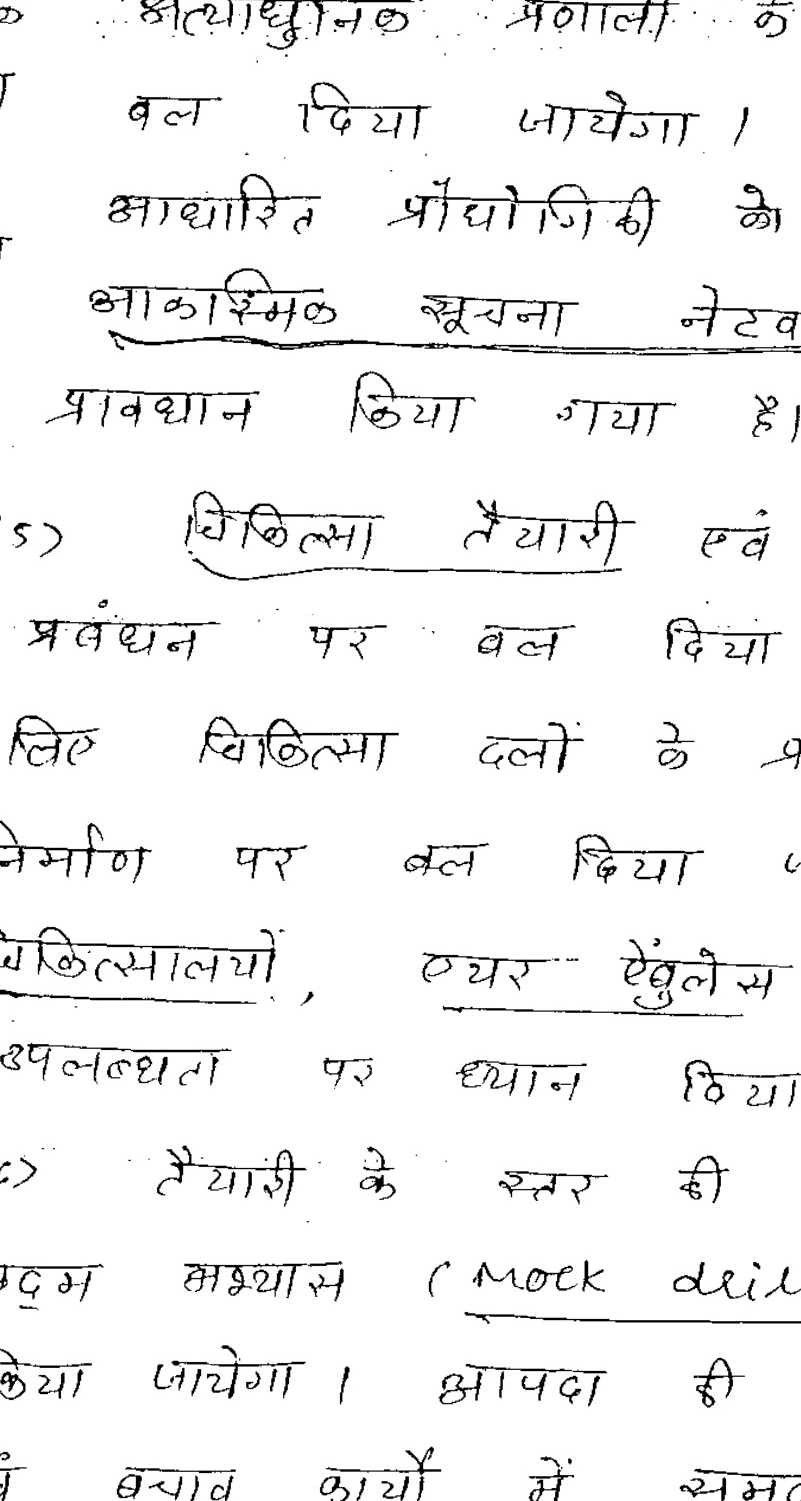 अत्याधुनिक प्रणाली के
बल दिया जायेगा ।
आधारित प्रौद्योगिकी को
आकास्मिक सूचना
प्रावधान किया गया है।
5) चिकित्सा तैयारी एवं
प्रबंधन पर बल दिया
लिए चिकित्सा दलों के
निर्माण पर बल दिया
चिकित्सालयों, एयर ऐंबुलेंस
उपलब्धता पर ध्यान दिया
6) तैयारी के स्तर की
अभ्यास (Mock drill
किया जायेगा । आपदा की
बचाव कार्यों में